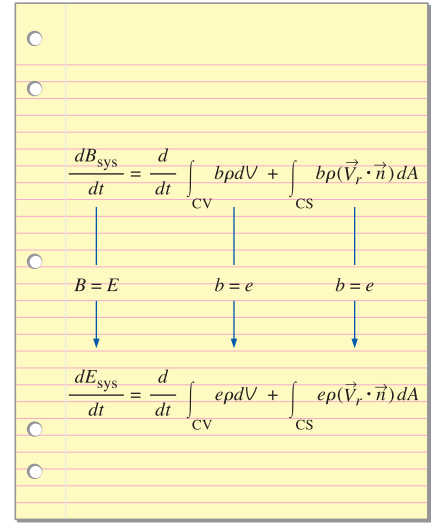 dB_sys/dt = d/dt ∫_CV bρdV + ∫_CS bρ(V⃗_r · n⃗)dA
B = E b = e b = e
dE_sys/dt = d/dt ∫_CV eρdV + ∫_CS eρ(V⃗_r · n⃗)dA